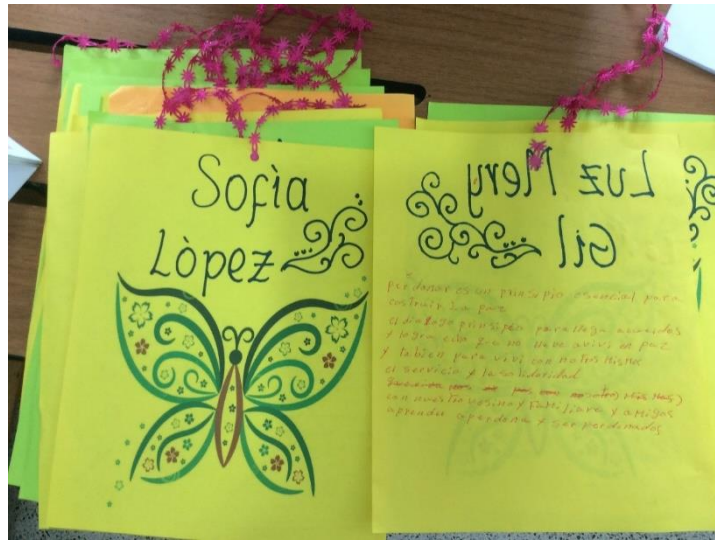 Sofìa
Lòpez
Luz Mery
Gil
perdonar es un prinsipio esencial para
costruir la paz
el dialogo prinsipio para llega acuerdos
y logra con
y tabien para vivi con notros mismo
el servicio y la solidaridad
con nuestro vesino y familiare y amigos
aprender aperdona y ser perdonados